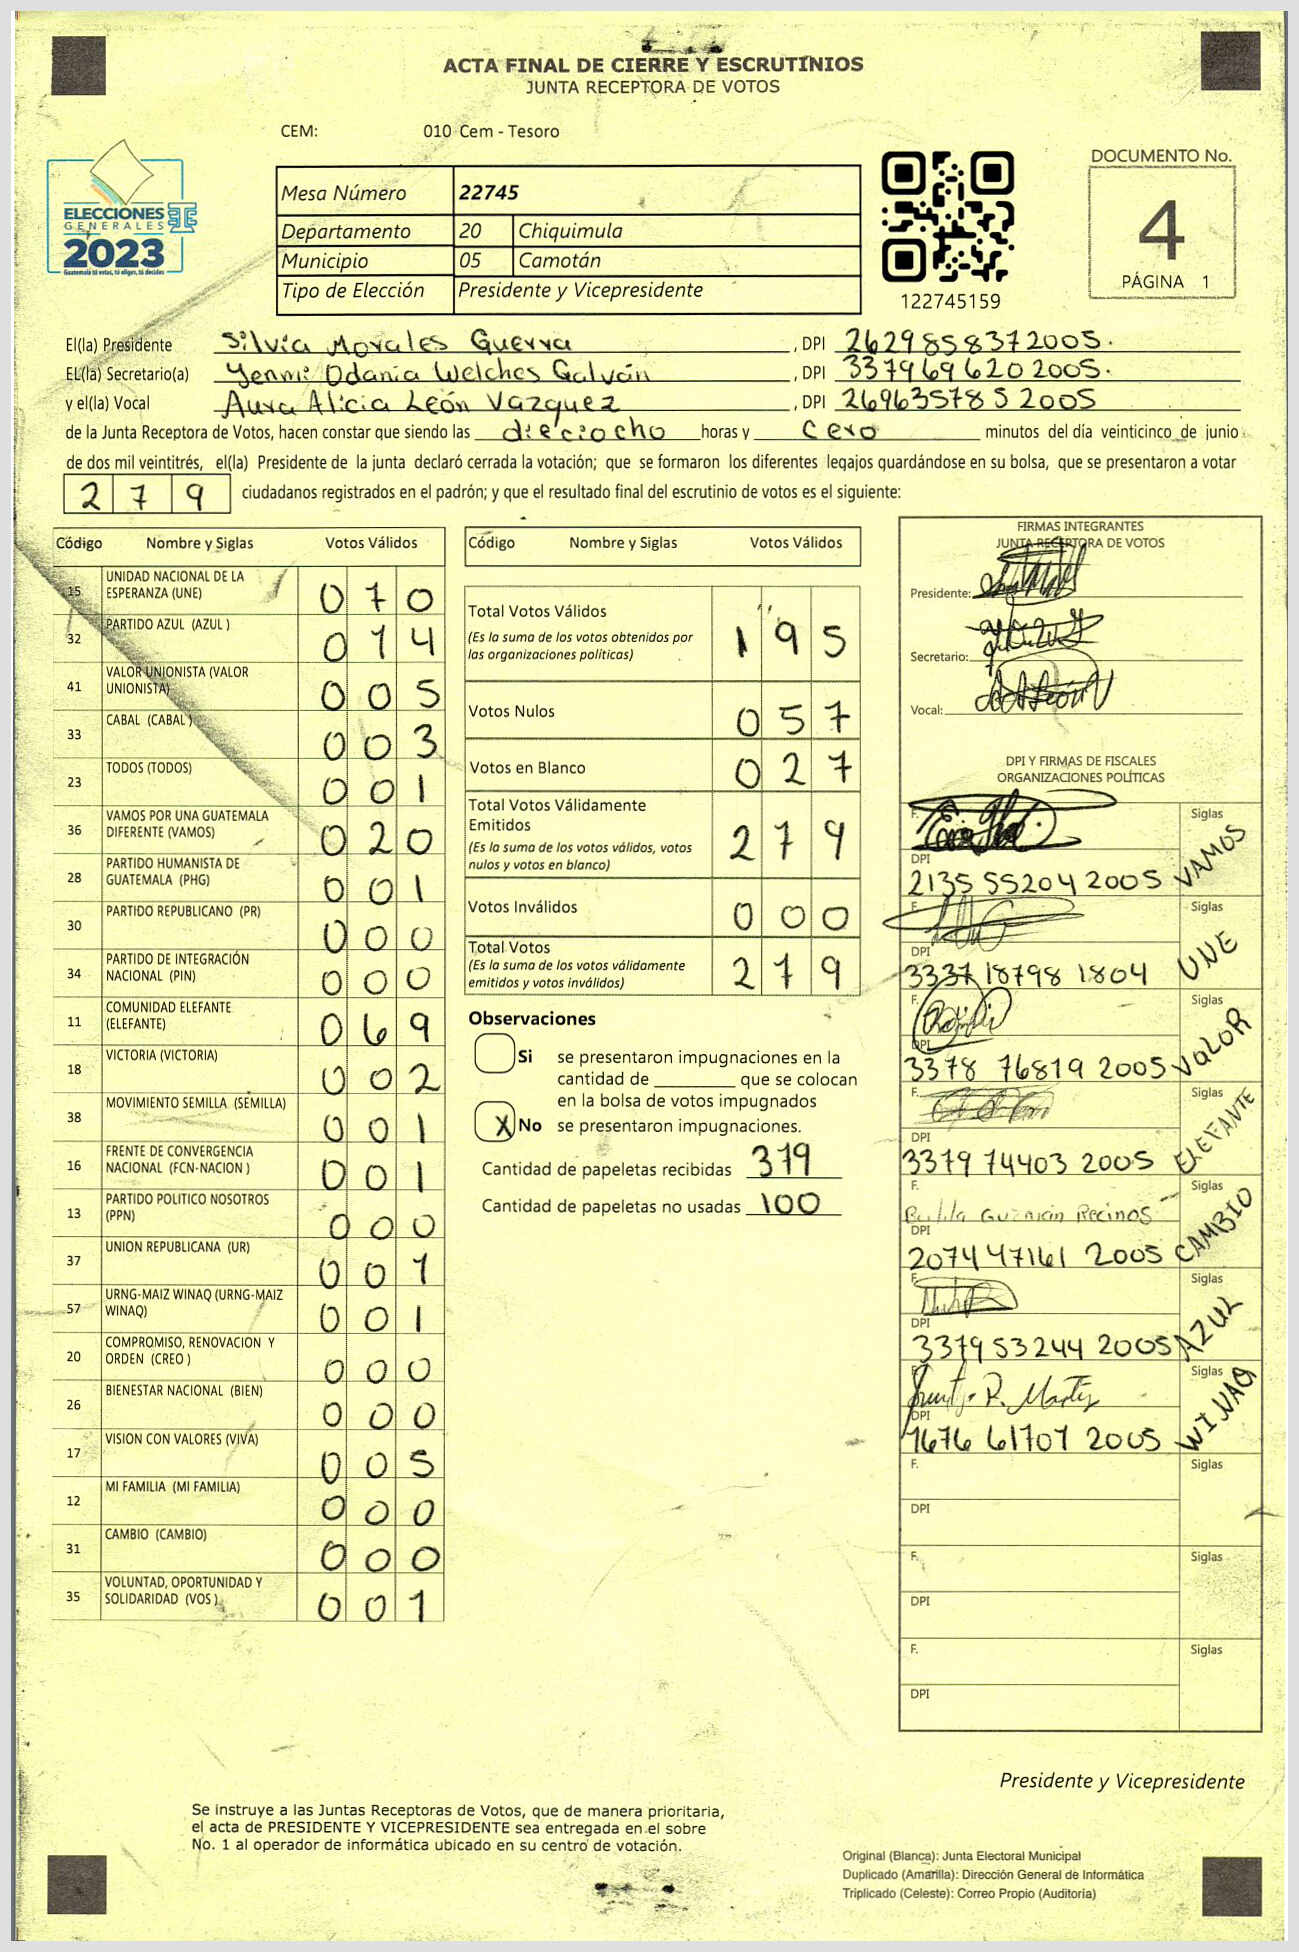 ACTA FINAL DE CIERRE Y ESCRUTINIOS
JUNTA RECEPTORA DE VOTOS
CEM: 010 Cem - Tesoro
ELECCIONES
GENERALES
2023
Guatemala tú votas, tú eliges, tú decides
Mesa Número 22745
Departamento 20 Chiquimula
Municipio 05 Camotán
Tipo de Elección Presidente y Vicepresidente
122745159
DOCUMENTO No.
4
PÁGINA 1
El(la) Presidente Silvia Morales Guerra, DPI 2629858372005.
EL(la) Secretario(a) Yenmi Odania Welches Galván, DPI 3379696202005.
y el(la) Vocal Aura Alicia León Vazquez, DPI 2696357852005
de la Junta Receptora de Votos, hacen constar que siendo las dieciocho horas y cero minutos del día veinticinco de junio
de dos mil veintitrés, el(la) Presidente de la junta declaró cerrada la votación; que se formaron los diferentes legajos guardándose en su bolsa, que se presentaron a votar
279 ciudadanos registrados en el padrón; y que el resultado final del escrutinio de votos es el siguiente:
Código Nombre y Siglas Votos Válidos
15 UNIDAD NACIONAL DE LA ESPERANZA (UNE) 070
32 PARTIDO AZUL (AZUL ) 014
41 VALOR UNIONISTA (VALOR UNIONISTA) 005
33 CABAL (CABAL ) 003
23 TODOS (TODOS) 001
36 VAMOS POR UNA GUATEMALA DIFERENTE (VAMOS) 020
28 PARTIDO HUMANISTA DE GUATEMALA (PHG) 001
30 PARTIDO REPUBLICANO (PR) 000
34 PARTIDO DE INTEGRACIÓN NACIONAL (PIN) 000
11 COMUNIDAD ELEFANTE (ELEFANTE) 069
18 VICTORIA (VICTORIA) 002
38 MOVIMIENTO SEMILLA (SEMILLA) 001
16 FRENTE DE CONVERGENCIA NACIONAL (FCN-NACION ) 001
13 PARTIDO POLITICO NOSOTROS (PPN) 000
37 UNION REPUBLICANA (UR) 001
57 URNG-MAIZ WINAQ (URNG-MAIZ WINAQ) 001
20 COMPROMISO, RENOVACION Y ORDEN (CREO ) 000
26 BIENESTAR NACIONAL (BIEN) 000
17 VISION CON VALORES (VIVA) 005
12 MI FAMILIA (MI FAMILIA) 000
31 CAMBIO (CAMBIO) 000
35 VOLUNTAD, OPORTUNIDAD Y SOLIDARIDAD (VOS ) 001
Código Nombre y Siglas Votos Válidos
Total Votos Válidos 195
(Es la suma de los votos obtenidos por
las organizaciones politicas)
Votos Nulos 057
Votos en Blanco 027
Total Votos Válidamente
Emitidos 279
(Es la suma de los votos válidos, votos
nulos y votos en blanco)
Votos Inválidos 000
Total Votos 279
(Es la suma de los votos válidamente
emitidos y votos inválidos)
Observaciones
Si se presentaron impugnaciones en la
cantidad de ________ que se colocan
en la bolsa de votos impugnados
X No se presentaron impugnaciones.
Cantidad de papeletas recibidas 379
Cantidad de papeletas no usadas 100
FIRMAS INTEGRANTES
JUNTA RECEPTORA DE VOTOS
Presidente:
Secretario:
Vocal:
DPI Y FIRMAS DE FISCALES
ORGANIZACIONES POLÍTICAS
F. Siglas VAMOS
DPI
2135 55204 2005
F. Siglas UNE
DPI
3337 18798 1804
F. Siglas VALOR
DPI
3378 76819 2005
F. Siglas ELEFANTE
DPI
3379 74403 2005
F. Guzmán Recinos Siglas CAMBIO
DPI
2074 47161 2005
F. Siglas AZUL
DPI
3379 53244 2005
F. Siglas WINAQ
DPI
1676 61707 2005
F. Siglas
DPI
F. Siglas
DPI
F. Siglas
DPI
Presidente y Vicepresidente
Se instruye a las Juntas Receptoras de Votos, que de manera prioritaria,
el acta de PRESIDENTE Y VICEPRESIDENTE sea entregada en el sobre
No. 1 al operador de informática ubicado en su centro de votación.
Original (Blanca): Junta Electoral Municipal
Duplicado (Amarilla): Dirección General de Informática
Triplicado (Celeste): Correo Propio (Auditoría)